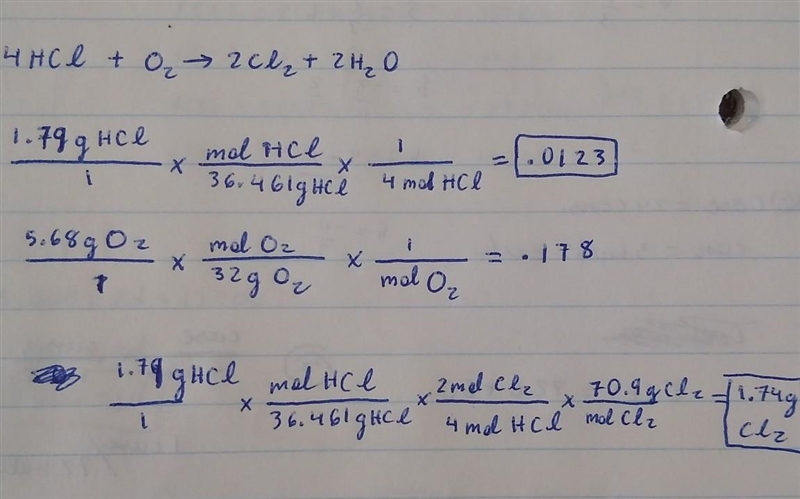 4HCl + O₂ → 2Cl₂ + 2H₂O
1.79 g HCl / 1 × mol HCl / 36.461 g HCl × 1 / 4 mol HCl = .0123
5.68 g O₂ / 1 × mol O₂ / 32 g O₂ × 1 / mol O₂ = .178
1.79 g HCl / 1 × mol HCl / 36.461 g HCl × 2 mol Cl₂ / 4 mol HCl × 70.9 g Cl₂ / mol Cl₂ = 1.74 g Cl₂